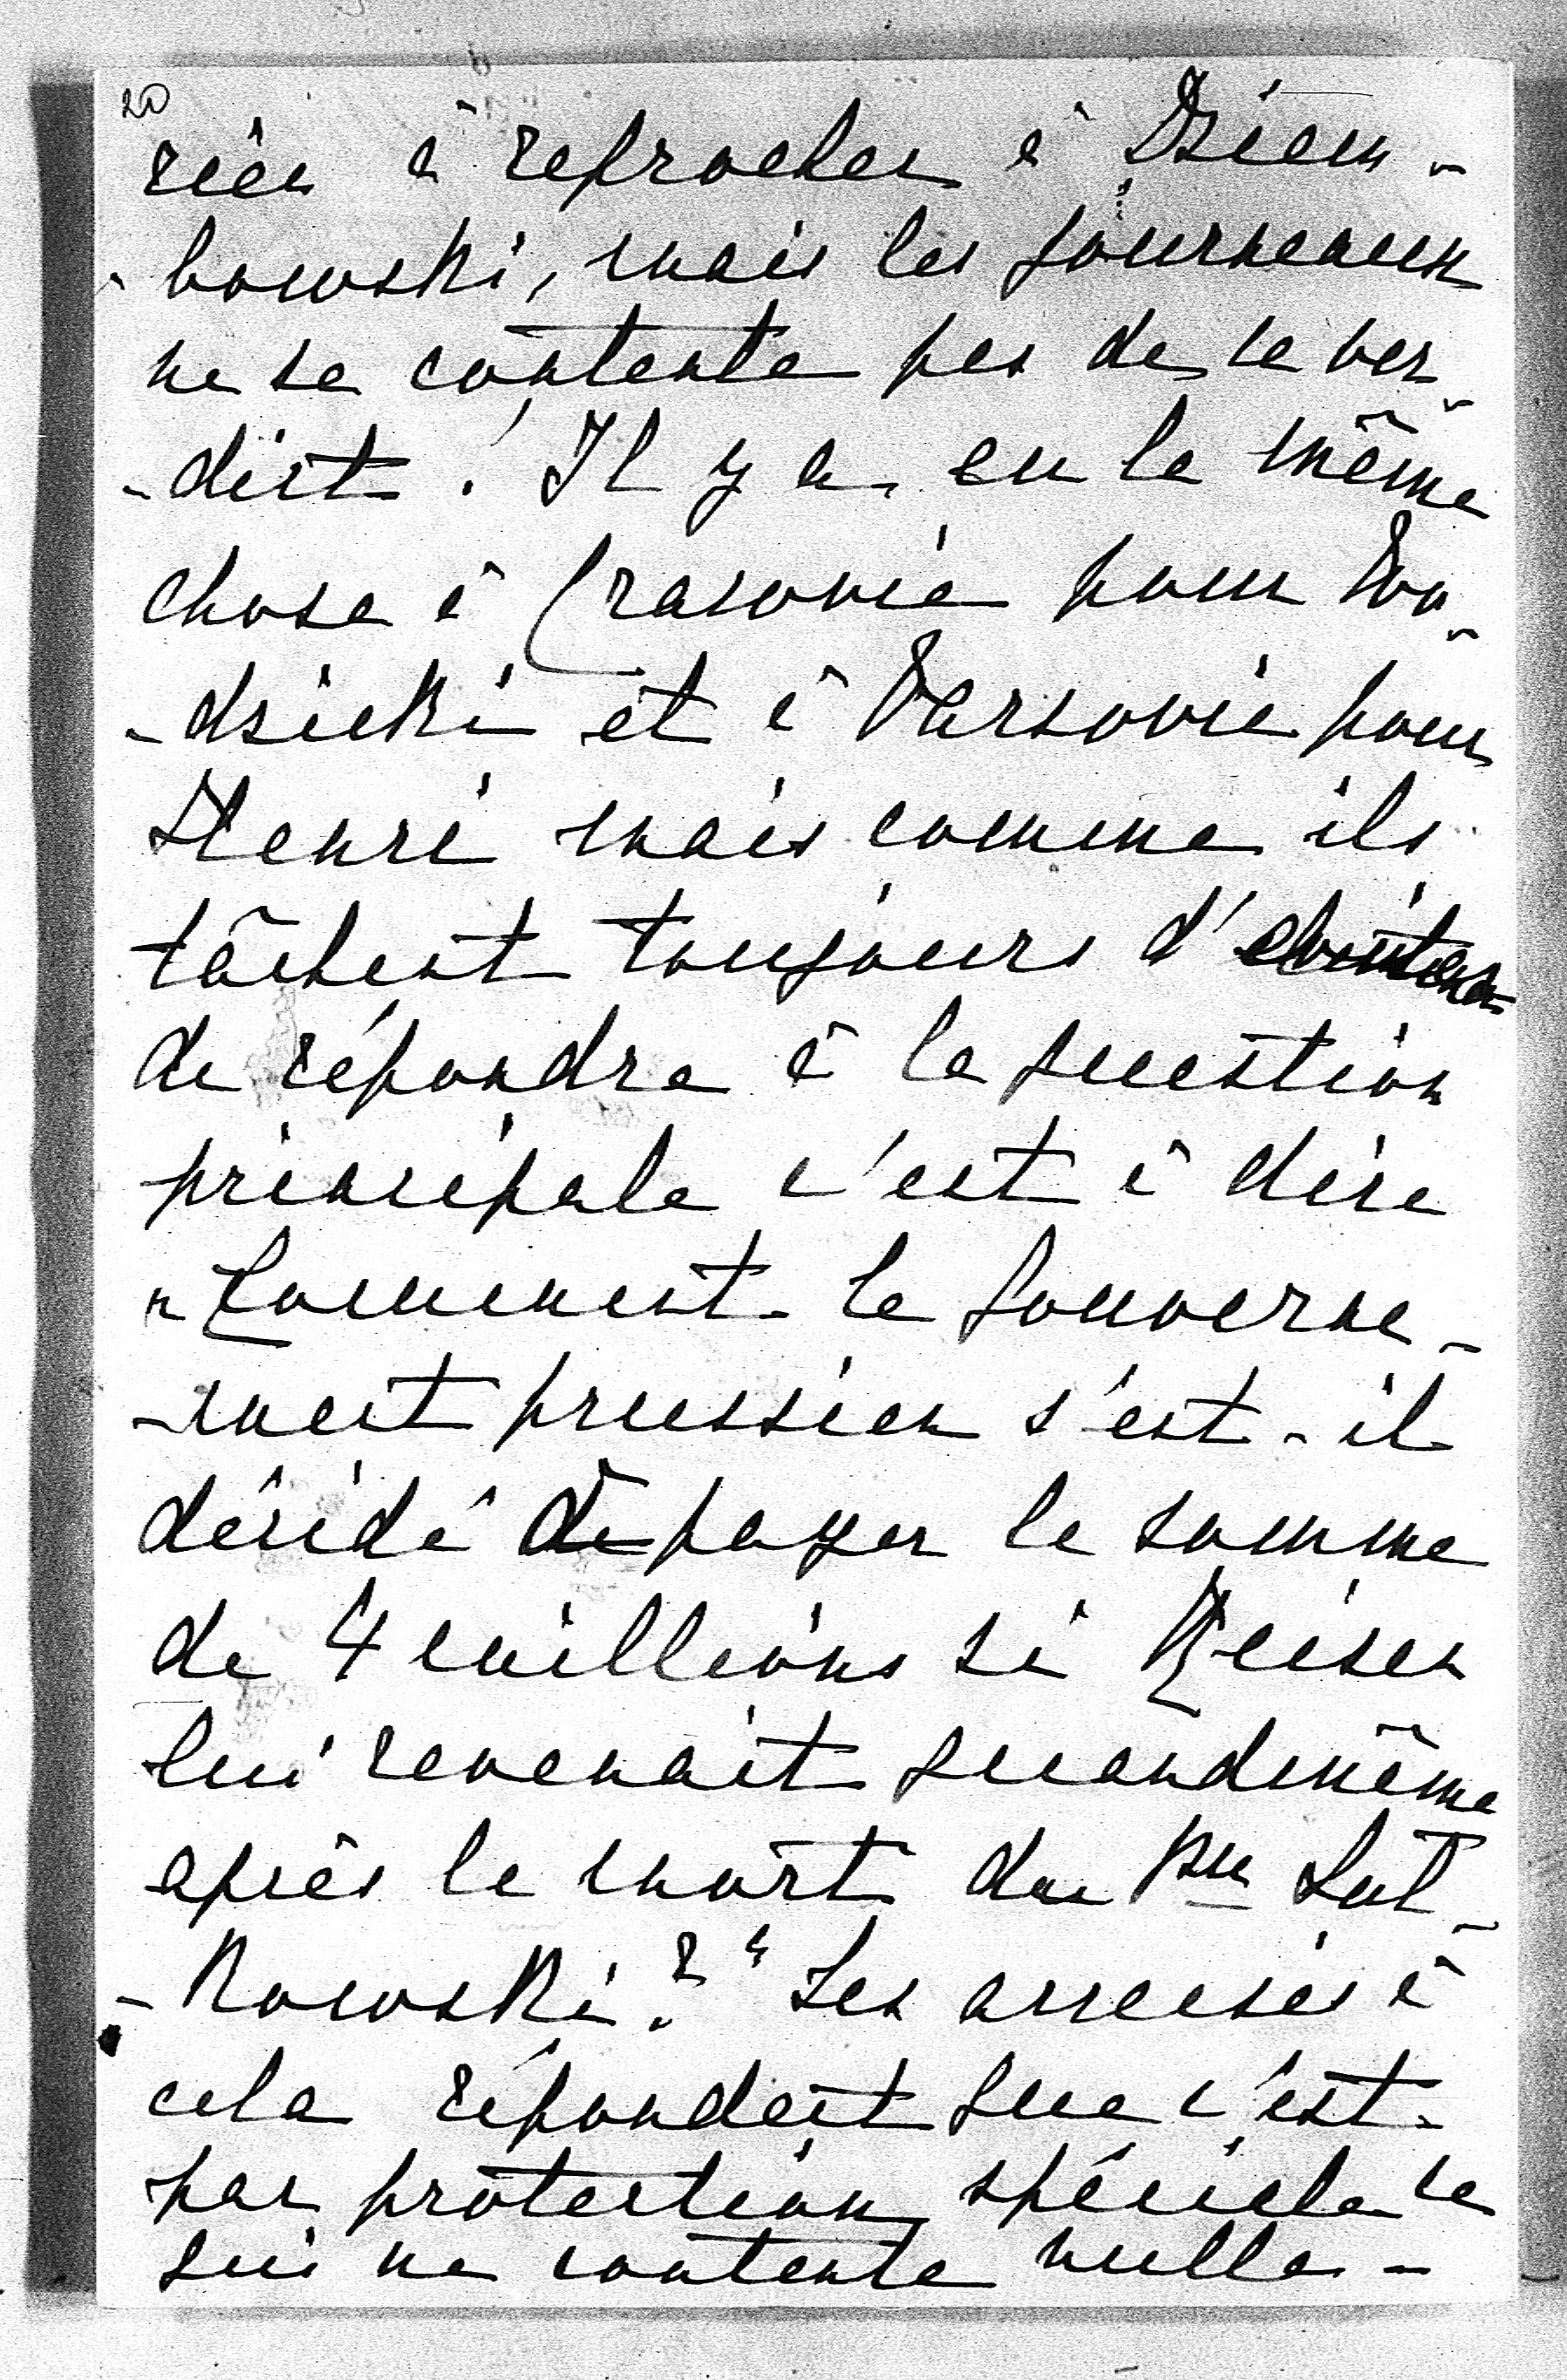 20
rien à reprocher à Dziem-
-bowski, mais les journeaux
ne se contente pas de ce ver-
-dict. Il y a eu la même
chose à Cracovie pour Wo-
-dzicki et à Varsovie pour
Henri mais comme ils
tâchent toujours d'éviter
de répondre à la question
principale c'est à dire
"Comment le gouverne-
-ment prussien s'est-il
décidé de payer la somme
de 4 millions si Reisen
lui revenait quandmême
après la mort du Pce Suł-
-kowski?" Les accusés à
cela répondent que c'est
par protection spéciale ce
qui ne contente nulle-